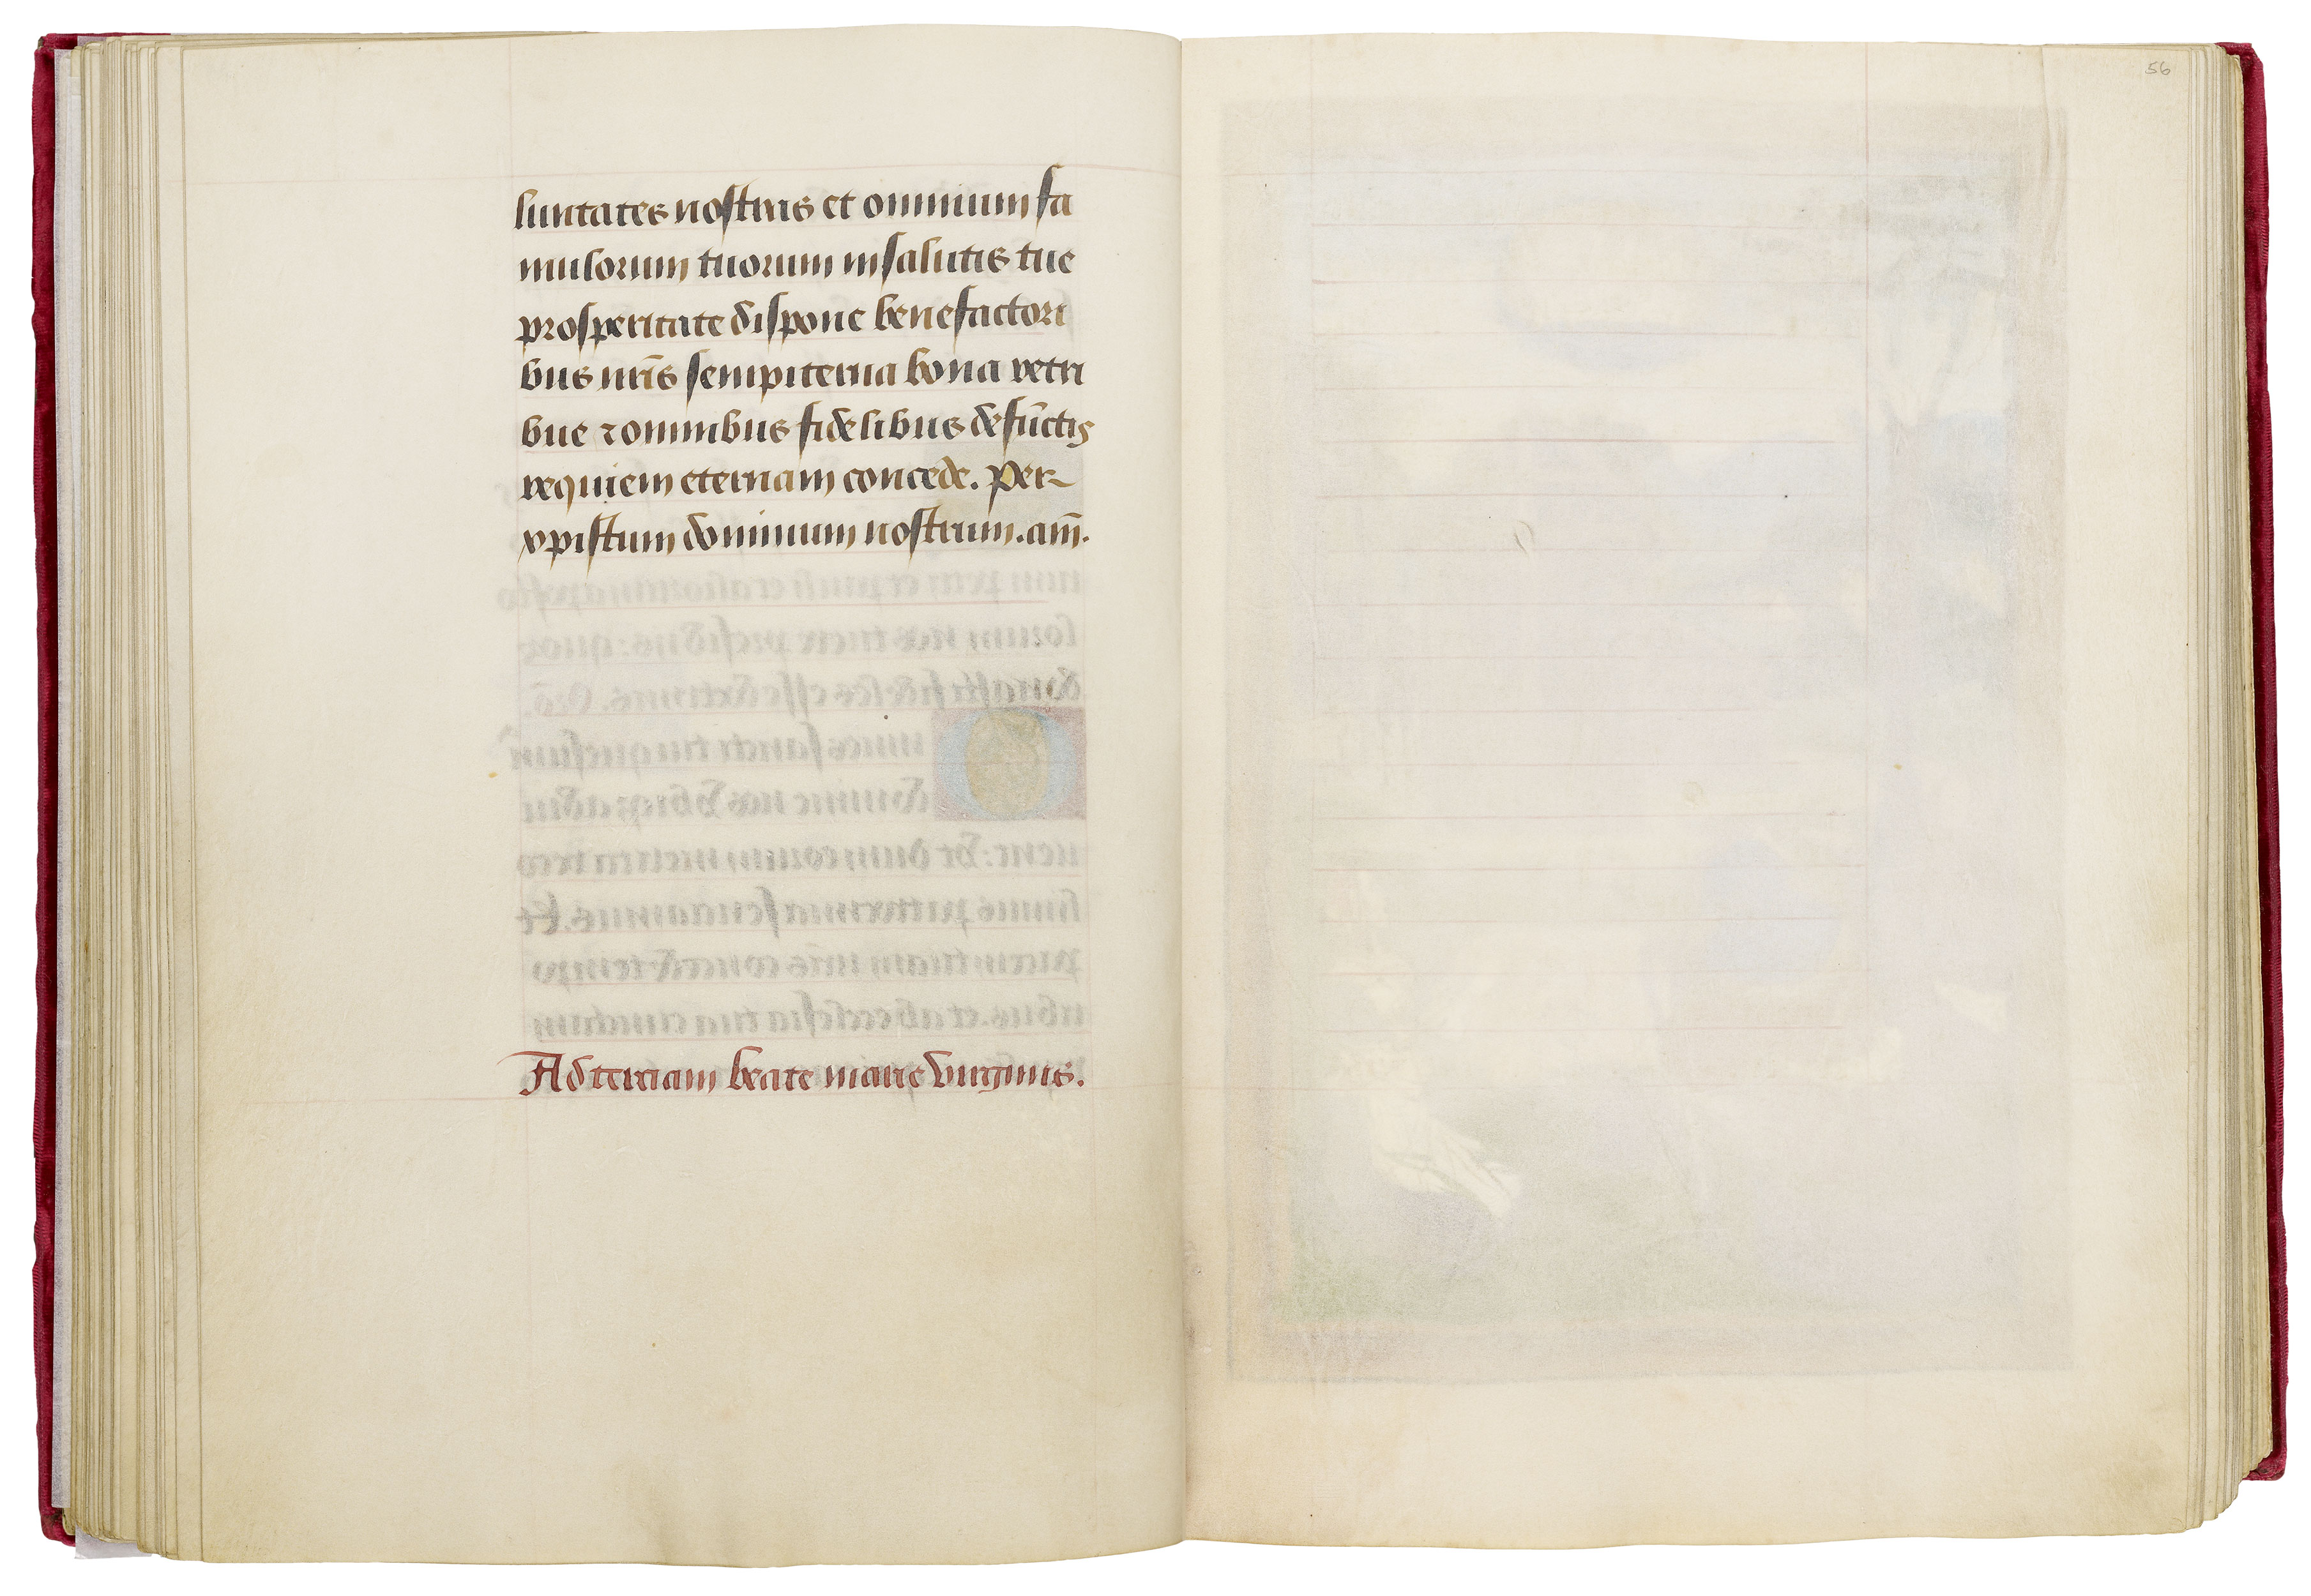 luntates nostras et omnium fa
mulorum tuorum in salutis tue
prosperitate dispone benefactori
bus nr̄is sempiterna bona retri
bue ⁊ omnibus fidelibus defūctis
requiem eternam concede. Per
xpistum dominum nostrum. am̄.
Ad terciam beate marie virginis.
56